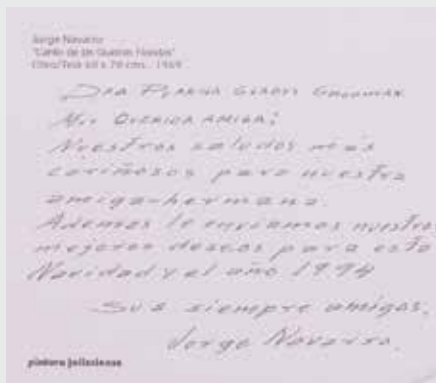 Jorge Navarro
"Canto de las Nuestros
Oleo/Tela 60 x 70 cms. 1969
DRA GLADYS
MUY QUERIDA AMIGA:
Nuestros saludos más
cariñosos para nuestra
amiga-hermana.
Ademas le enviamos nuestros
mejores deseos para esta
Navidad y el año 1994
Sus siempre amigos,
Jorge Navarro.
pintora jaliscience